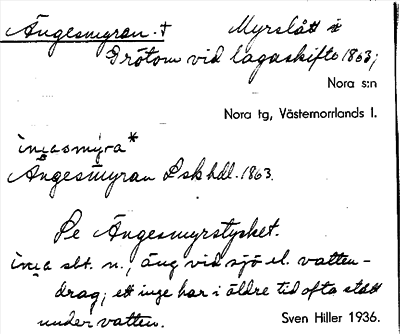 Ängesmyran. † Myrslått i
Grötom vid lagaskifte 1863;
Nora s:n
Nora tg, Västernorrlands l.
Ängesmyran Lskhdl. 1863.
Se Ängesmyrstycket.
sbt. n., äng vid sjö el. vatten-
drag; ett inge har i äldre tid ofta stått
under vatten. Sven Hiller 1936.